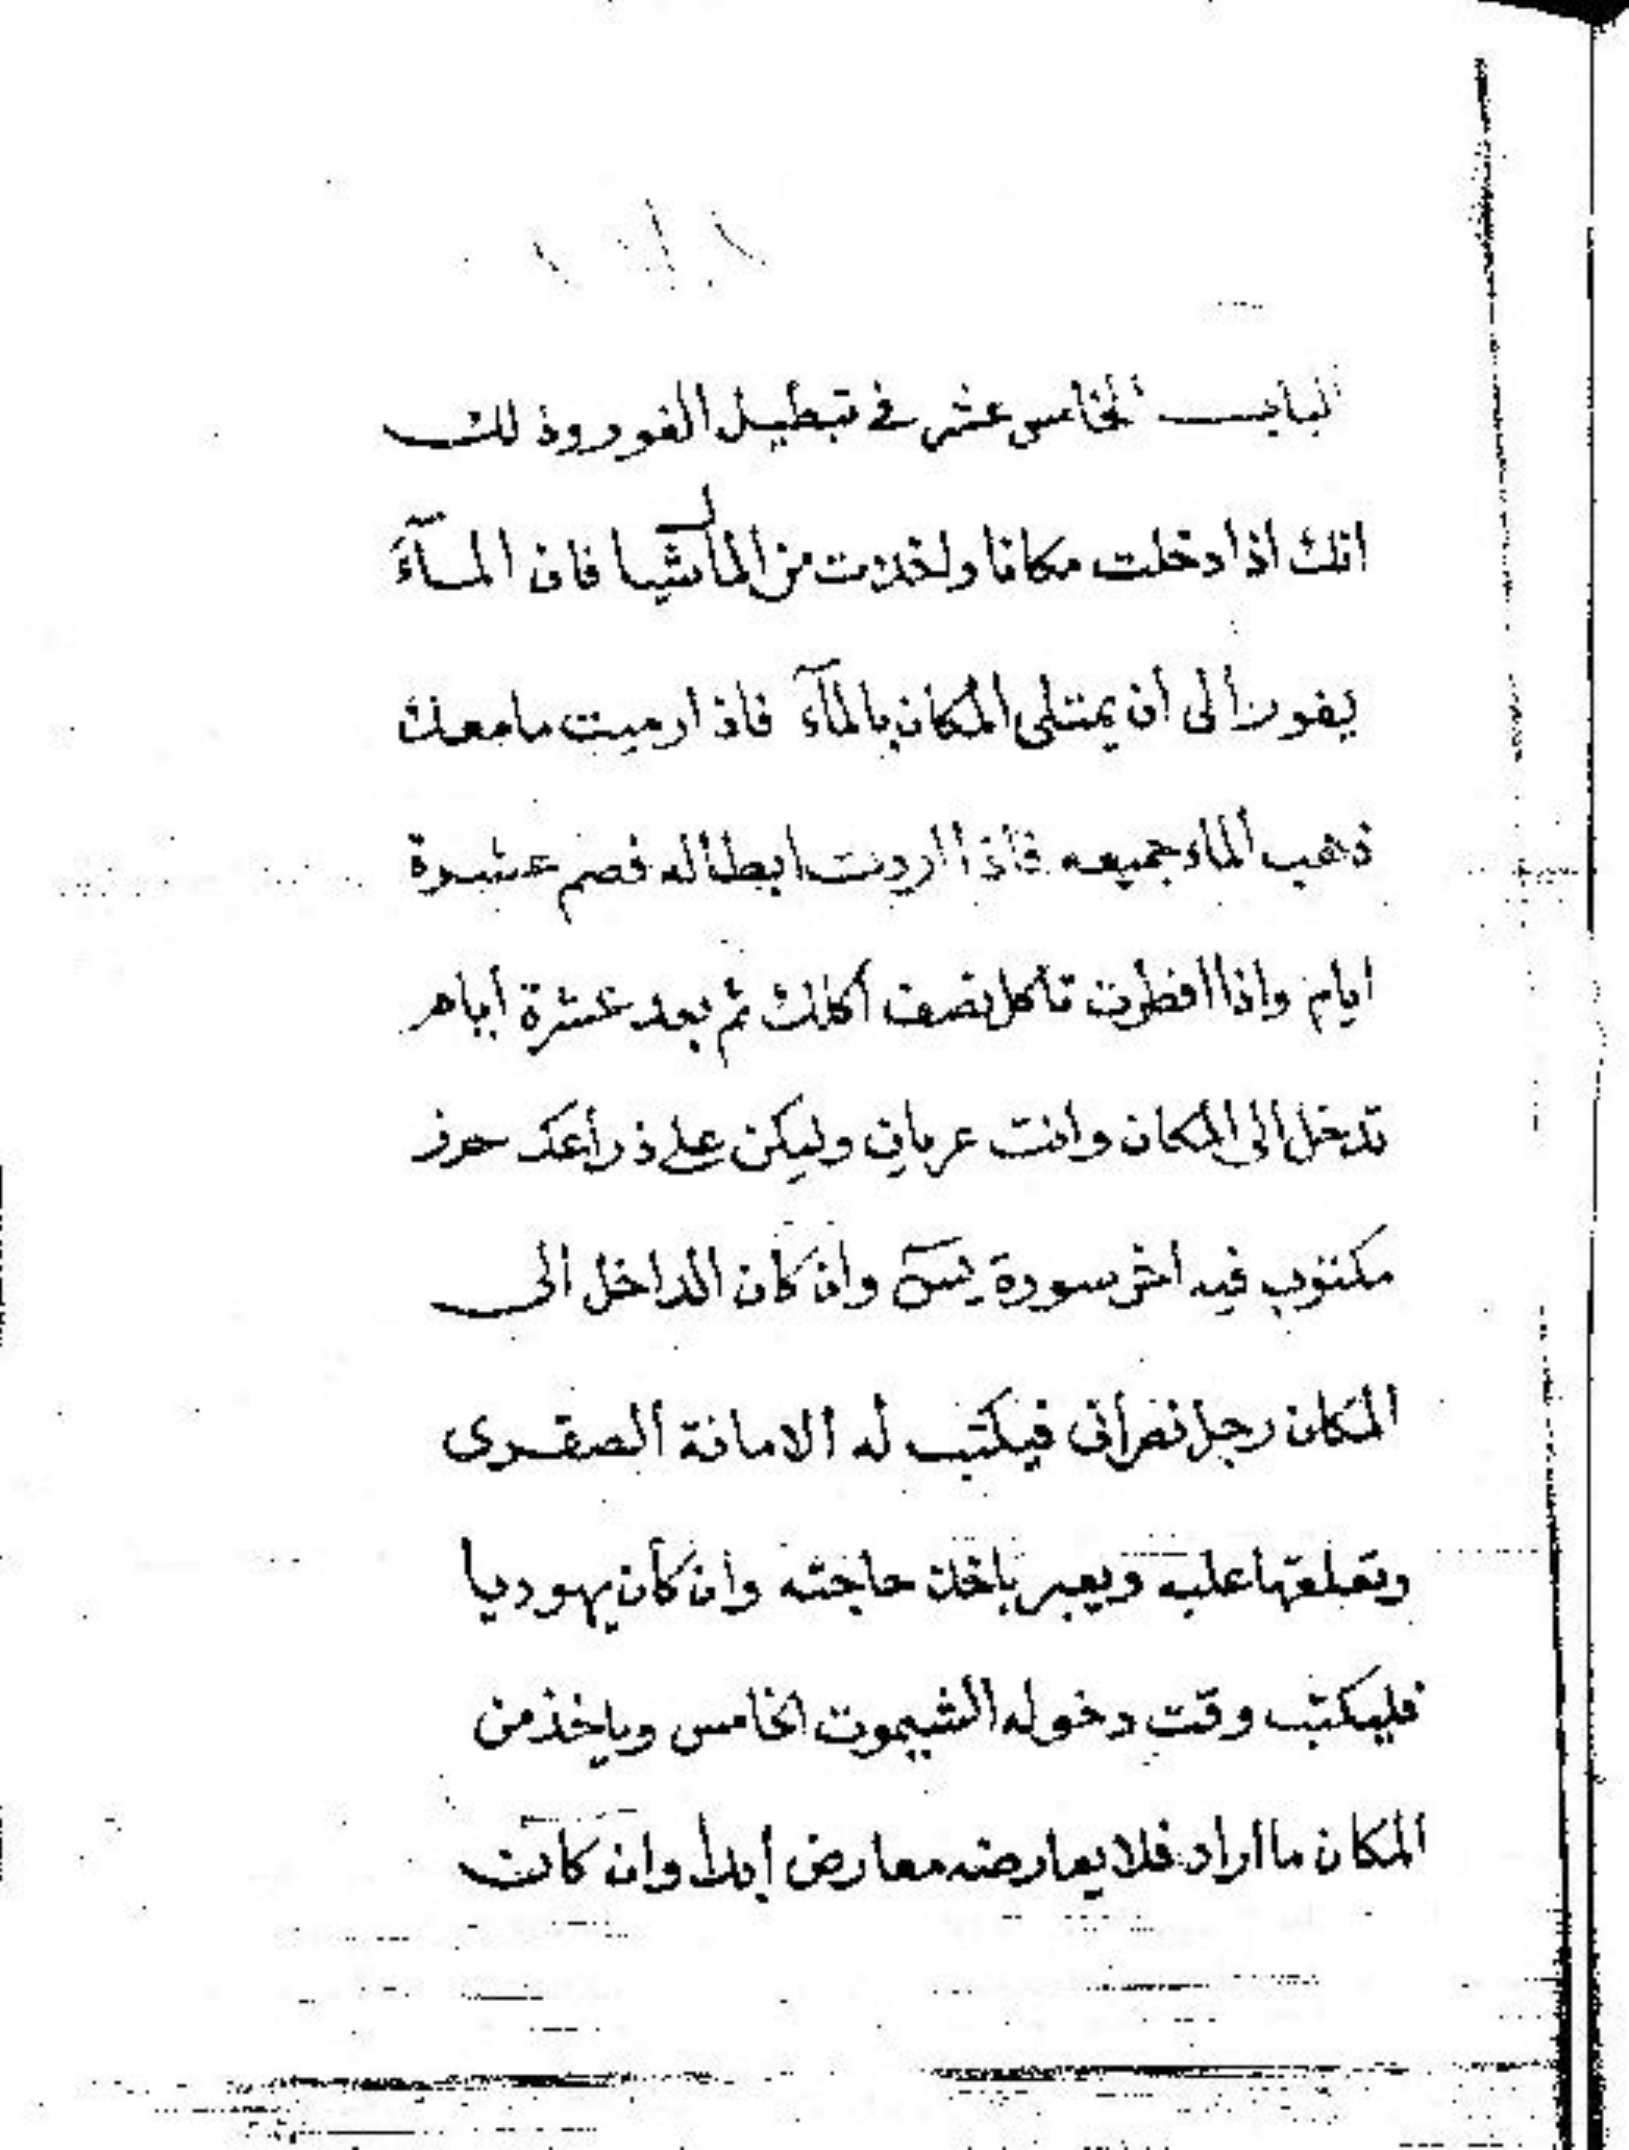 الباب الخامس عشر في تبطيل الفور وذلك
انك اذا دخلت مكانا واخذت من المال شيا فان المآء
يفور الى ان يمتلى المكان بالمآء فاذا رميت ما معك
ذهب الماء جميعه فاذا اردت ابطاله فصم عشرة
ايام واذا افطرت تاكل نصف اكلك ثم بعد عشرة ايام
تدخل الى المكان وانت عريان وليكن على ذراعك حرز
مكتوب فيه اخر سورة يسٓ وان كان الداخل الى
المكان رجل نصرانى فيكتب له الامانة الصقرى
وتعلقها عليه ويعبر ياخذ حاجته وان كان يهوديا
فليكتب وقت دخوله الشيموت الخامس وياخذ من
المكان ما اراد فلا يعارضه معارض ابدا وان كانت